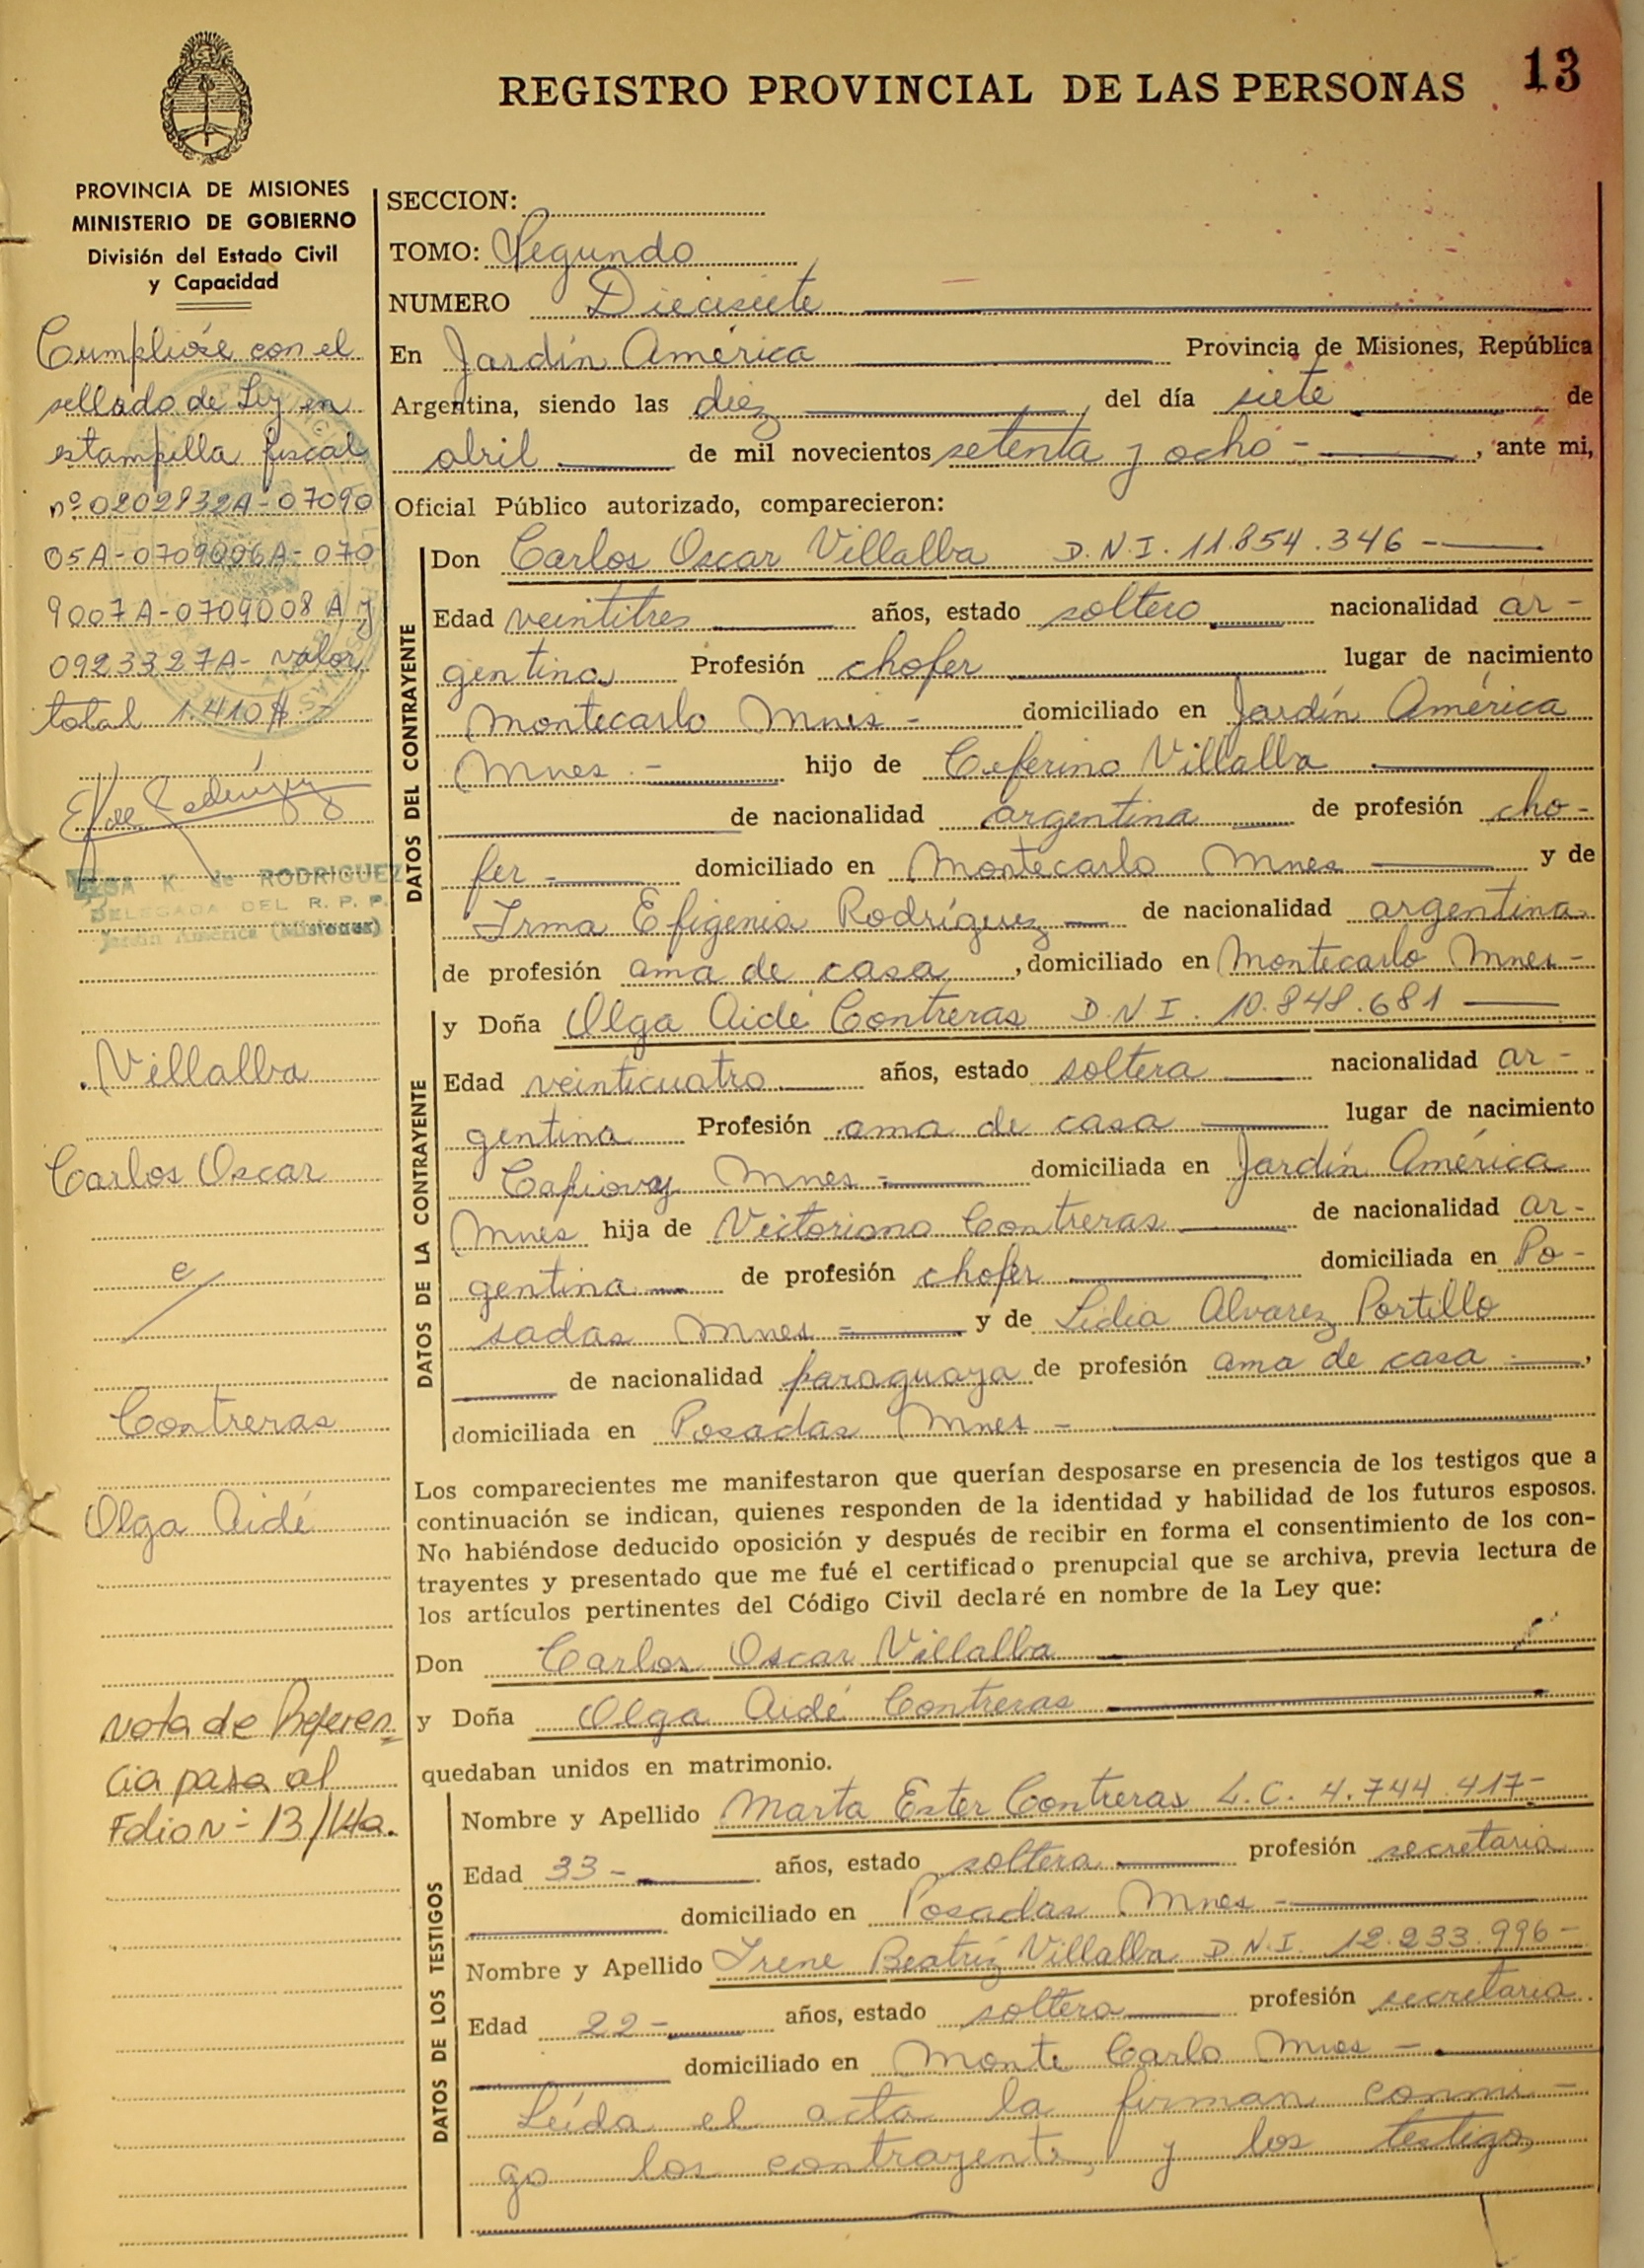 REGISTRO PROVINCIAL DE LAS PERSONAS 13
PROVINCIA DE MISIONES
MINISTERIO DE GOBIERNO
División del Estado Civil
y Capacidad
Cumplióse con el
sellado de Ley en
estampilla fiscal
nº 0202832A-07090
05A-0709006A-070
9007A-0709008A y
0923327A- valor
total 1.410$-
K. de RODRIGUEZ
DELEGADA DEL R. P. P.
Jardín América (Misiones)
Villalba
Carlos Oscar
e/
Contreras
Olga Aidé
Nota de Referen
cia pasa al
Folio N- 13/14a.
SECCION:
TOMO: Segundo
NUMERO Diecisiete
En Jardín América Provincia de Misiones, República
Argentina, siendo las diez del día siete de
abril de mil novecientos setenta y ocho - , ante mi,
Oficial Público autorizado, comparecieron:
DATOS DEL CONTRAYENTE
Don Carlos Oscar Villalba D.N.I. 11.854.346 -
Edad veintitres años, estado soltero nacionalidad ar-
gentina Profesión chofer lugar de nacimiento
Montecarlo Mnes - domiciliado en Jardín América
Mnes - hijo de Ceferino Villalba
de nacionalidad argentina de profesión cho-
fer - domiciliado en Montecarlo Mnes y de
Irma Efigenia Rodríguez de nacionalidad argentina
de profesión ama de casa , domiciliado en Montecarlo Mnes -
DATOS DE LA CONTRAYENTE
y Doña Olga Aidé Contreras D.N.I. 10.848.681
Edad veinticuatro años, estado soltera nacionalidad ar-
gentina Profesión ama de casa lugar de nacimiento
Capiovay Mnes - domiciliada en Jardín América
Mnes hija de Victoriano Contreras de nacionalidad ar-
gentina de profesión chofer domiciliada en Po-
sadas Mnes - y de Lidia Alvarez Portillo
de nacionalidad paraguaya de profesión ama de casa - ,
domiciliada en Posadas Mnes -
Los comparecientes me manifestaron que querían desposarse en presencia de los testigos que a
continuación se indican, quienes responden de la identidad y habilidad de los futuros esposos.
No habiéndose deducido oposición y después de recibir en forma el consentimiento de los con-
trayentes y presentado que me fué el certificado prenupcial que se archiva, previa lectura de
los artículos pertinentes del Código Civil declaré en nombre de la Ley que:
Don Carlos Oscar Villalba
y Doña Olga Aidé Contreras
quedaban unidos en matrimonio.
DATOS DE LOS TESTIGOS
Nombre y Apellido Marta Ester Contreras L.C. 4.744.417-
Edad 33- años, estado soltera profesión secretaria
domiciliado en Posadas Mnes -
Nombre y Apellido Irene Beatríz Villalba D.N.I. 12.233.996-
Edad 22- años, estado soltera profesión secretaria
domiciliado en Monte Carlo Mnes -
Leída el acta la firman conmi-
go los contrayentes y los testigos